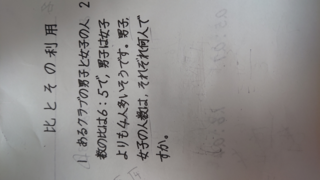 比とその利用
1 あるクラブの男子と女子の人
数の比は6:5で,男子は女子
よりも4人多いそうです。男子,
女子の人数は,それぞれ何人で
すか。
2